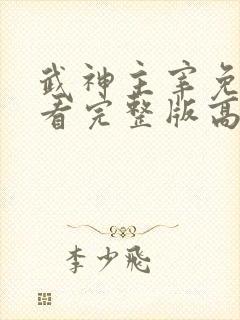 武神主宰免
看完整版高
李少飛